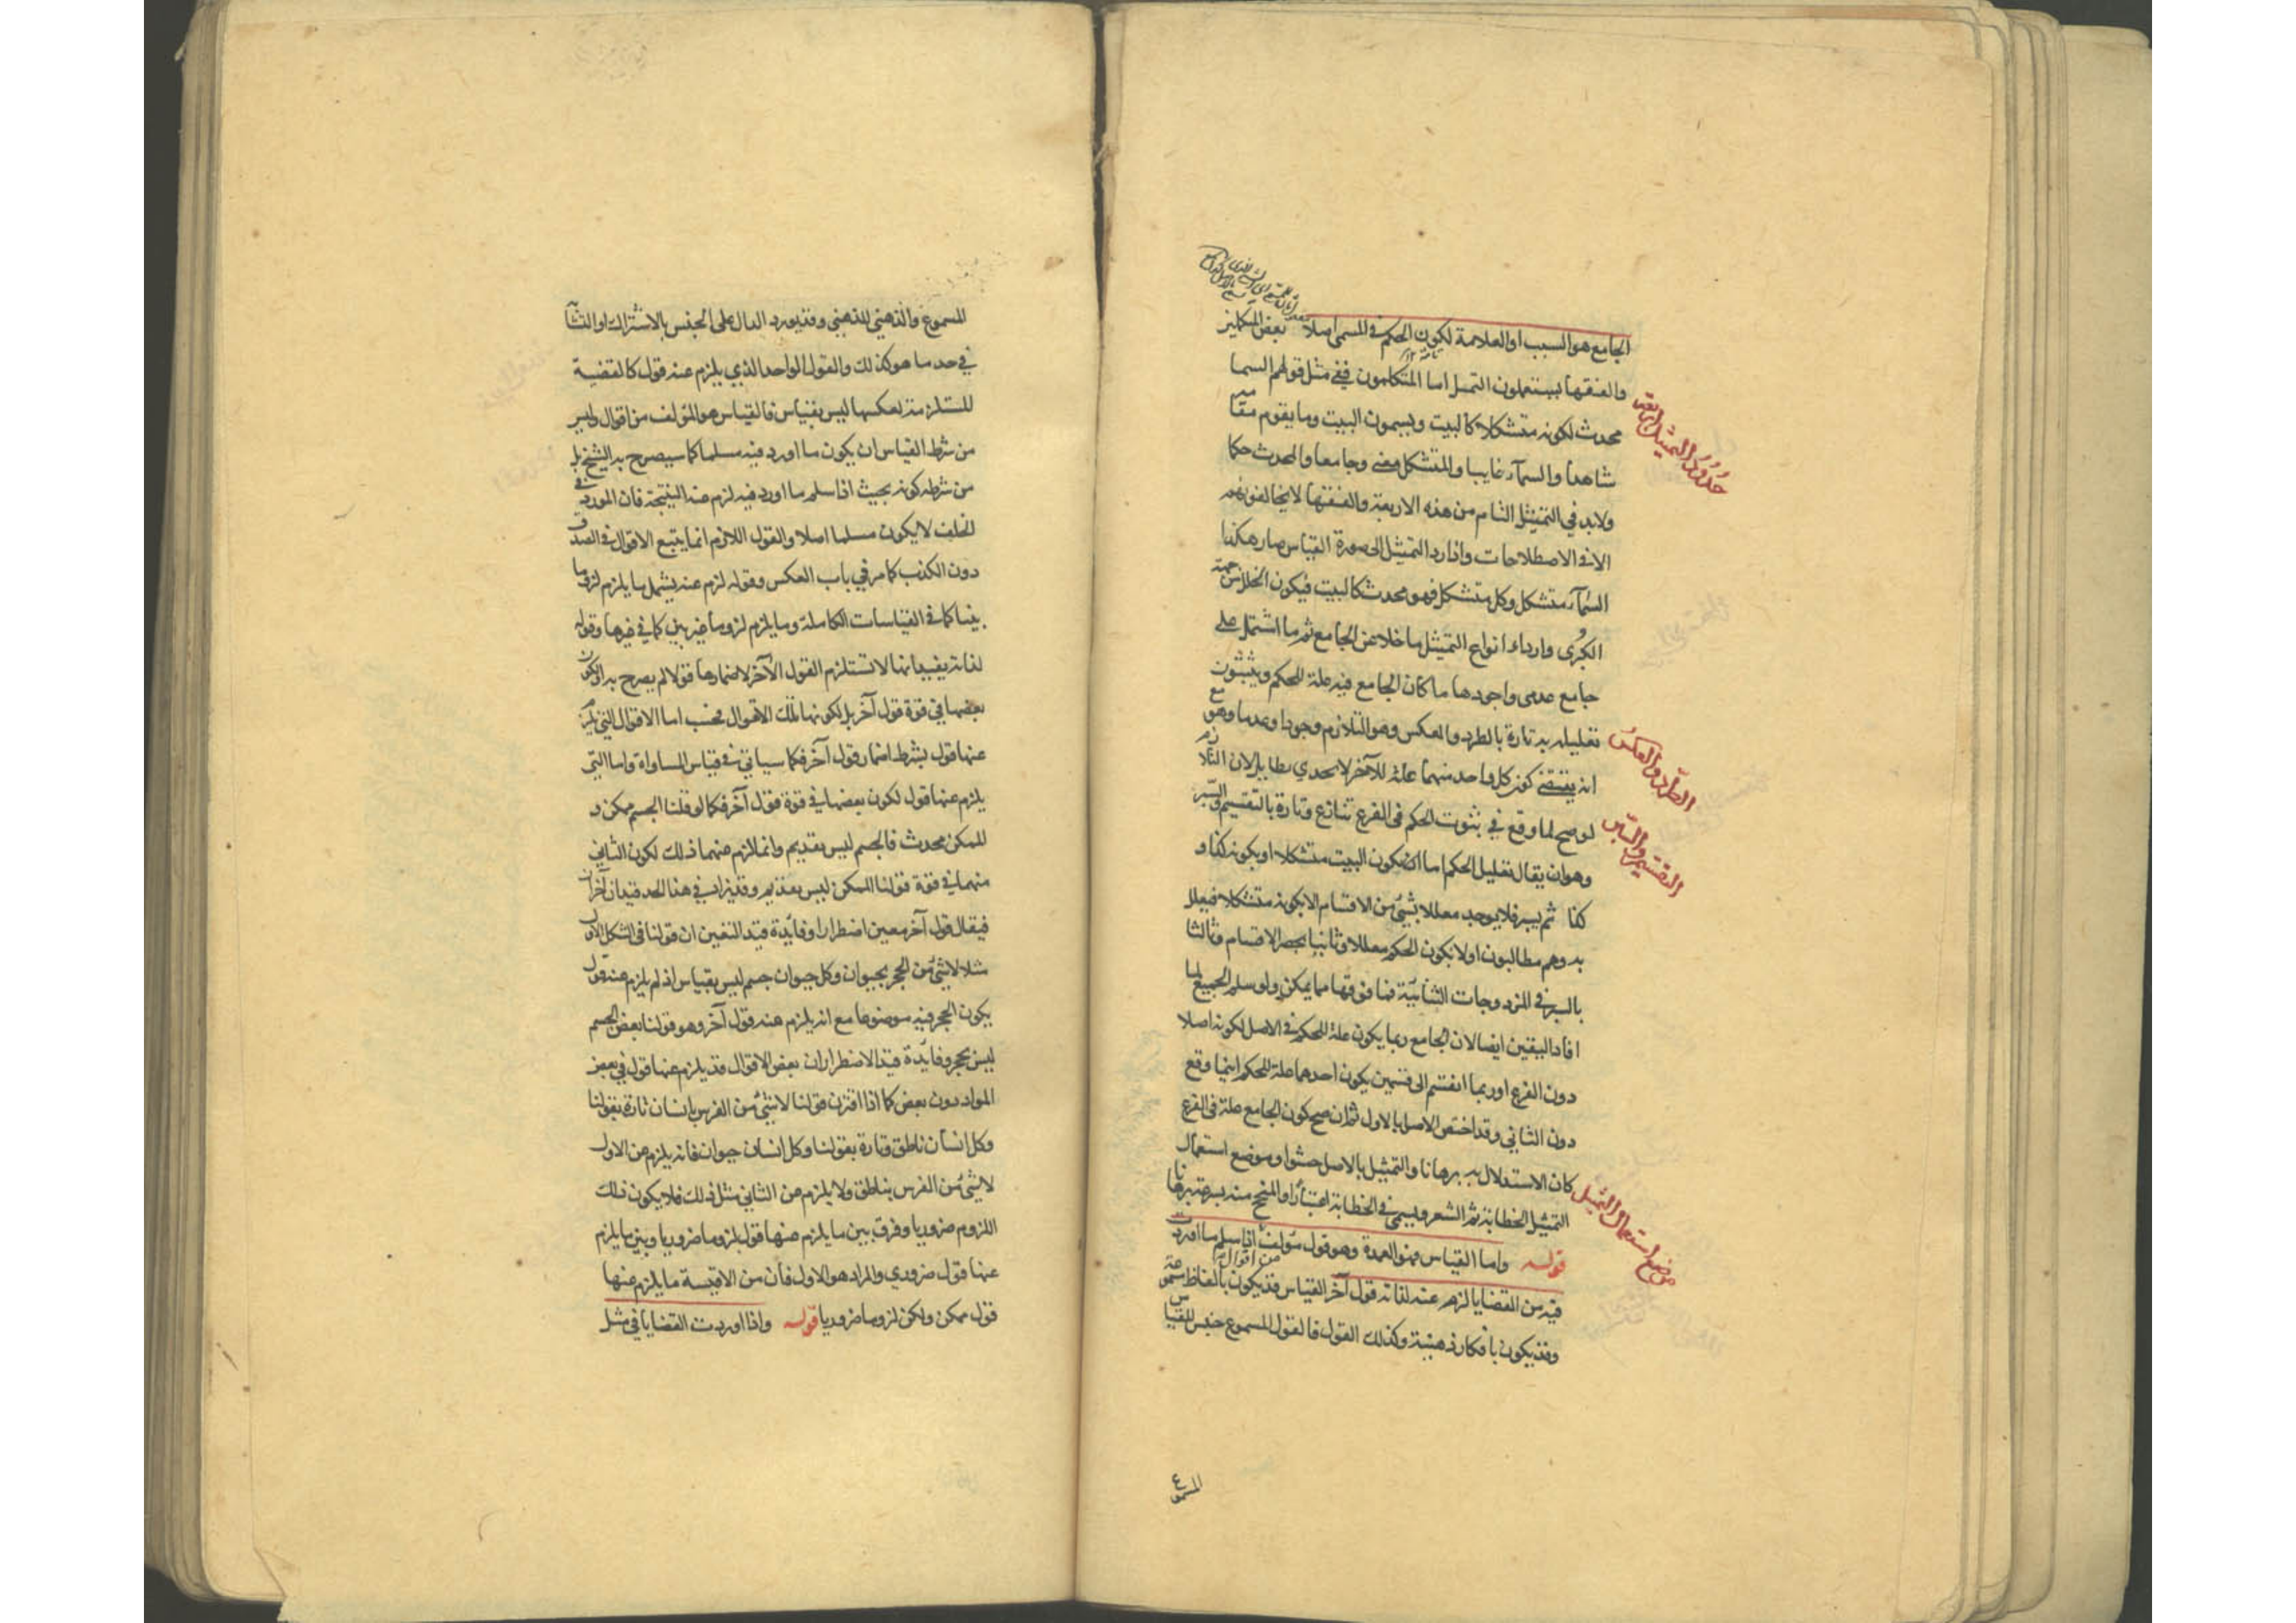 الجامع هو السبب او العلامة لكون الحكم في المسمى اصلا بعض المتكلمين
والفقها يستعملون التمثيل اما المتكلمون ففي مثل قولهم السما
محدث لكونه متشكلا كالبيت ويسمون البيت وما يقوم مقامه
شاهدا والسمآء غايبا والمتشكل معنى وجامعا والمحدث حكما
ولابد في التمثيل التام من هذه الاربعة والفقها لا يخالفونهم
الا في الاصطلاحات واذا رد التمثيل الى صورة القياس صار هكذا
السمآء متشكل وكل متشكل فهو محدث كالبيت فيكون الخلل من جهة
الكبرى وارداء انواع التمثيل ما خلا عن الجامع ثم ما اشتمل على
جامع عدمى واجودها ما كان الجامع فيه علة للحكم ويثبتون
تعليله به تارة بالطرد والعكس وهو التلازم وجودا وعدما وهو مع
انه يقتضي كون كل واحد منهما علة للآخر لا يجدي بطايل لان التلازم
لو صح لما وقع في ثبوت الحكم في الفرع تنازع وتارة بالتقسيم والسبر
وهو ان يقال تعليل الحكم اما ان يكون البيت متشكلا او بكونه كذا و
كذا ثم يسبر فلا يوجد معللا بشئ من الاقسام الا بكونه متشكلا فيعلل
به وهم مطالبون اولا بكون الحكم معللا وثانيا بحصر الاقسام وثالثا
بالسبر في المزدوجات الثنائية فما فوقها مما يمكن ولو سلم الجميع لما
افاد اليقين ايضا لان الجامع ربما يكون علة للحكم في الاصل لكونه اصلا
دون الفرع او ربما انقسم الى قسمين يكون احدهما علة للحكم اينما وقع
دون الثاني وقد اختص الاصل بالاول ثم ان صح كون الجامع علة في الفرع
كان الاستدلال به برهانا والتمثيل بالاصل حشوا وموضع استعمال
التمثيل الخطابة ثم الشعر ويسمى في الخطابة اعتبارا والمنجح منه بسرعة برهانا
قوله واما القياس فهو العمدة وهو قول مؤلف من اقوال اذا سلم ما اورد
فيه من القضايا لزم عنه لذاته قول آخر القياس قد يكون بالفاظ مسموعة
وقد يكون بافكار ذهنية وكذلك القول فالقول المسموع جنس للقياس
المسموع
حدود التمثيل اربعة
الطرد والعكس
التقسيم والسبر
موضع استعمال التمثيل
المسموع والذهني للذهني وقد يورد الدال على الجنس بالاشتراك او التشابه
في حد ما هو كذلك والقول الواحد الذي يلزم عنه قول كالقضية
المستلزمة لعكسها ليس بقياس فالقياس هو المؤلف من اقوال وليس
من شرط القياس ان يكون ما اورد فيه مسلما كما سيصرح به الشيخ بل
من شرطه كونه بحيث اذا سلم ما اورد فيه لزم عنه النتيجة فان المورد في
الخلف لا يكون مسلما اصلا والقول اللازم انما يتبع الاقوال في الصدق
دون الكذب كما مر في باب العكس وقوله لزم عنه يشمل ما يلزم لزوما
بينا كما في القياسات الكاملة وما يلزم لزوما غير بين كما في غيرها وقوله
لذاته يفيد انها لا تستلزم القول الآخر لاضمارها قولا لم يصرح به او لكون
بعضها في قوة قول آخر بل لكونها تلك الاقوال فحسب اما الاقوال التي يلزم
عنها قول بشرط اضمار قول آخر فكما سياتي في قياس المساواة واما التي
يلزم عنها قول لكون بعضها في قوة قول آخر فكما لو قلنا الجسم ممكن و
الممكن محدث فالجسم ليس بقديم وانما لزم عنهما ذلك لكون الثاني
منهما في قوة قولنا الممكن ليس بقديم وقد يزاد في هذا الحد قيدان آخران
فيقال قول آخر معين اضطرارا وفايدة قيد التعين ان قولنا في الشكل الاول
مثلا لا شئ من الحجر بحيوان وكل حيوان جسم ليس بقياس اذ لم يلزم عنه قول
يكون الحجر فيه موضوعا مع انه يلزم عنه قول آخر وهو قولنا بعض الجسم
ليس بحجر وفايدة قيد الاضطرار ان بعض الاقوال قد يلزم عنها قول في بعض
المواد دون بعض كما اذا اقترن قولنا لا شئ من الفرس بانسان تارة بقولنا
وكل انسان ناطق وتارة بقولنا وكل انسان حيوان فانه يلزم من الاول
لا شئ من الفرس بناطق ولا يلزم من الثاني مثل ذلك فلا يكون ذلك
اللزوم ضروريا وفرق بين ما يلزم عنها قول لزوما ضروريا وبين ما يلزم
عنها قول ضروري والمراد هو الاول فان من الاقيسة ما يلزم عنها
قول ممكن ولكن لزوما ضروريا قوله واذا اوردت القضايا في مثل